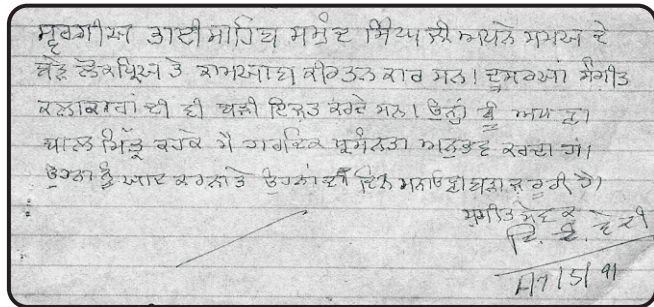 ਸ੍ਵਰਗੀਯ ਭਾਈ ਸਾਹਿਬ ਸਮੁੰਦ ਸਿੰਘ ਜੀ ਅਪਨੇ ਸਮਯ ਦੇ
ਬੜੇ ਲੋਕਪ੍ਰਿਯ ਤੇ ਕਾਮਯਾਬ ਕੀਰਤਨ ਕਾਰ ਸਨ। ਦੂਸਰਯਾਂ ਸੰਗੀਤ
ਕਲਾਕਾਰਾਂ ਦੀ ਵੀ ਬੜੀ ਇਜ਼ਤ ਕਰਦੇ ਸਨ। ਉਨ੍ਹਾਂ ਨੂੰ ਅਪਣਾ
ਬਾਲ ਮਿੱਤ੍ਰ ਕਹਕੇ ਮੈਂ ਹਾਰਦਿਕ ਪ੍ਰਸੰਨਤਾ ਅਨੁਭਵ ਕਰਦਾ ਹਾਂ।
ਉਹਨਾਂ ਨੂੰ ਯਾਦ ਕਰਨਾ ਤੇ ਉਹਨਾਂ ਦਾ ਦਿਨ ਮਨਾਉਣਾ ਬੜਾ ਜ਼ਰੂਰੀ ਹੈ।
ਸੰਗੀਤ ਸੇਵਕ
17/5/91